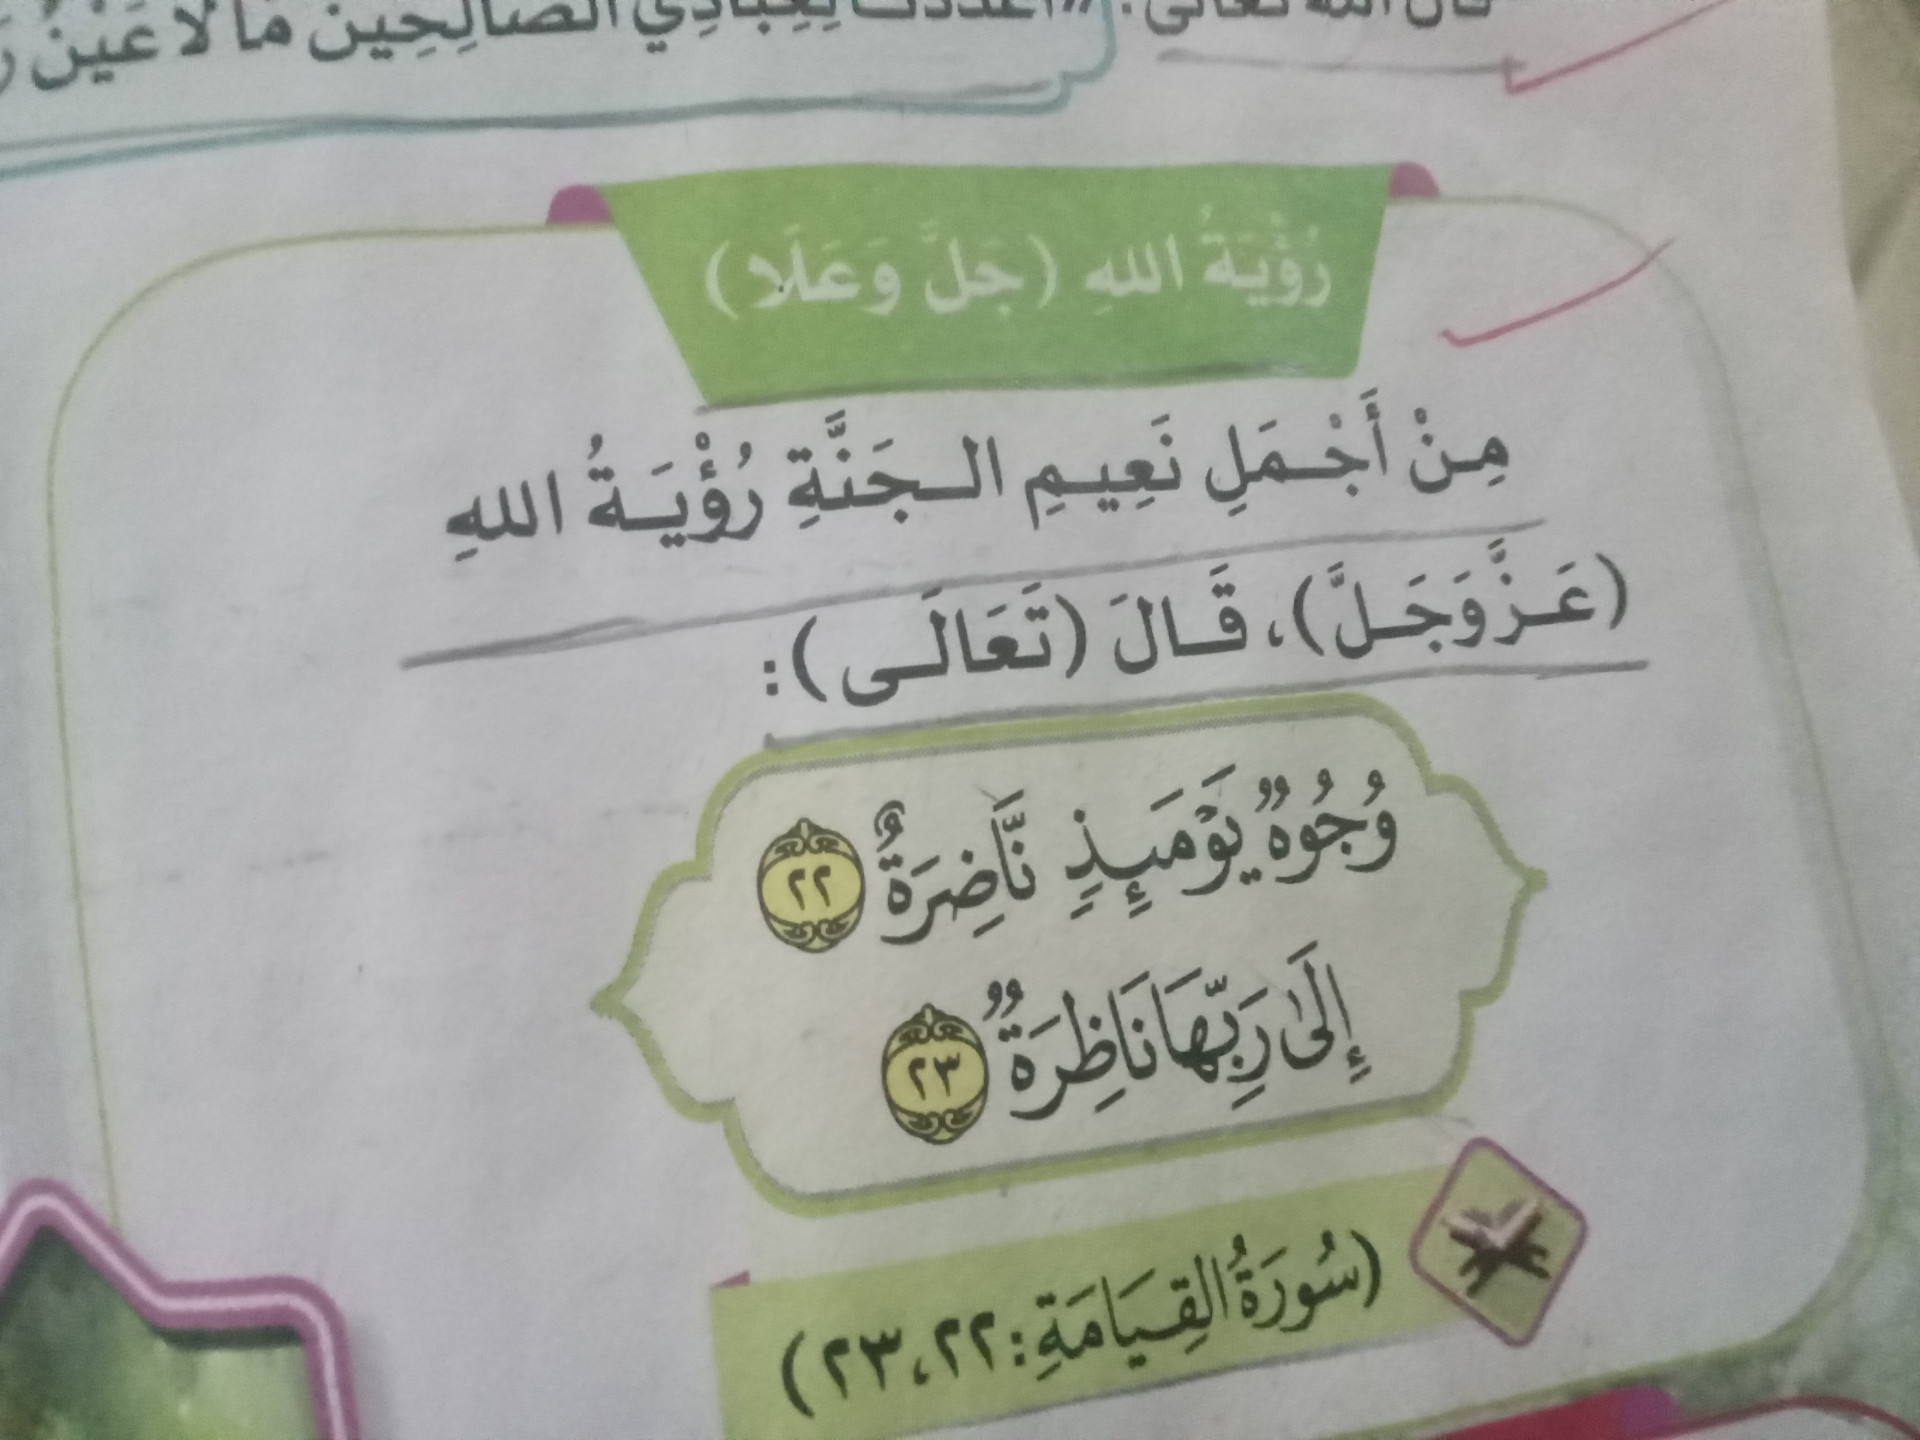 قال الله تعالى: «أعددت لِعِبَادِي الصَّالِحِين مَا لَا عَيْنٌ
رُؤْيَةُ اللهِ (جَلَّ وَعَلَا)
مِنْ أَجْمَلِ نَعِيمِ الجَنَّةِ رُؤْيَةُ اللهِ
(عَزَّوَجَلَّ)، قَالَ (تَعَالَى):
وُجُوهٌ يَوْمَئِذٍ نَّاضِرَةٌ ٢٢
إِلَىٰ رَبِّهَا نَاظِرَةٌ ٢٣
(سُورَةُ القِيَامَةِ: ٢٢، ٢٣)